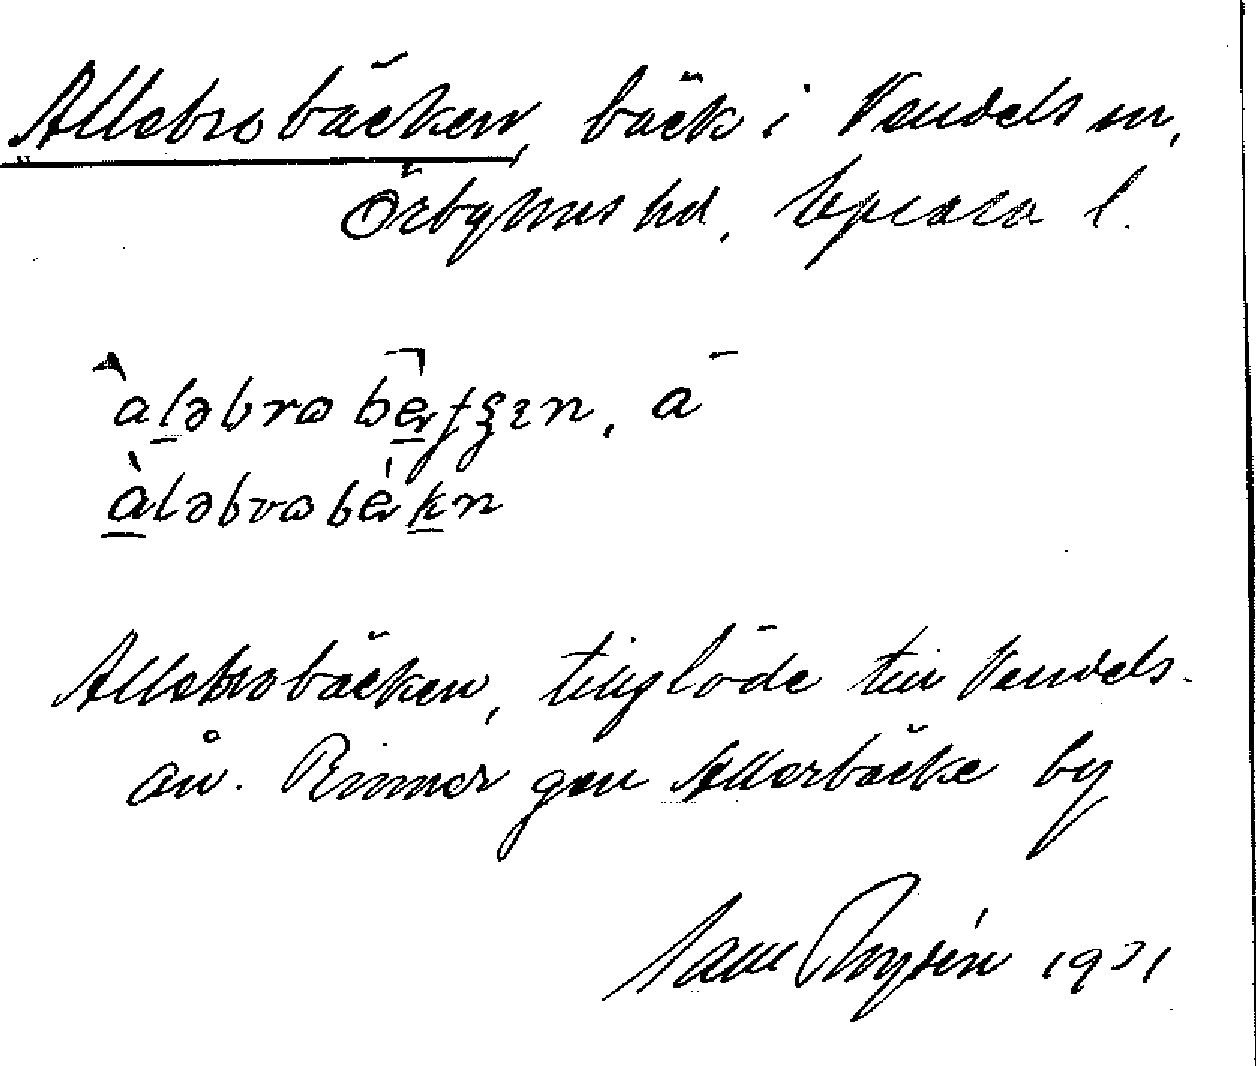 Allebrobäcken, bäck i Vendels sn,
Örbyhus hd, Uppsala l.
aləbro , a
aləbro
Allebrobäcken, tillflöde till Vendels-
ån. Rinner gm Allerbäcke by
1931